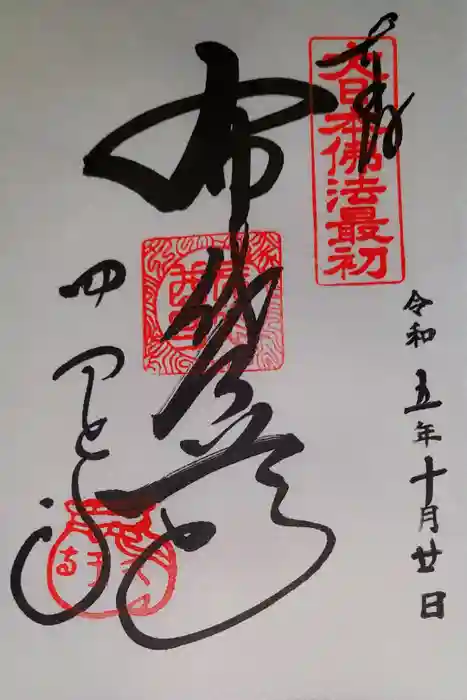 奉拝
大日本佛法最初
令和五年十月廿日
布袋尊
四天王寺